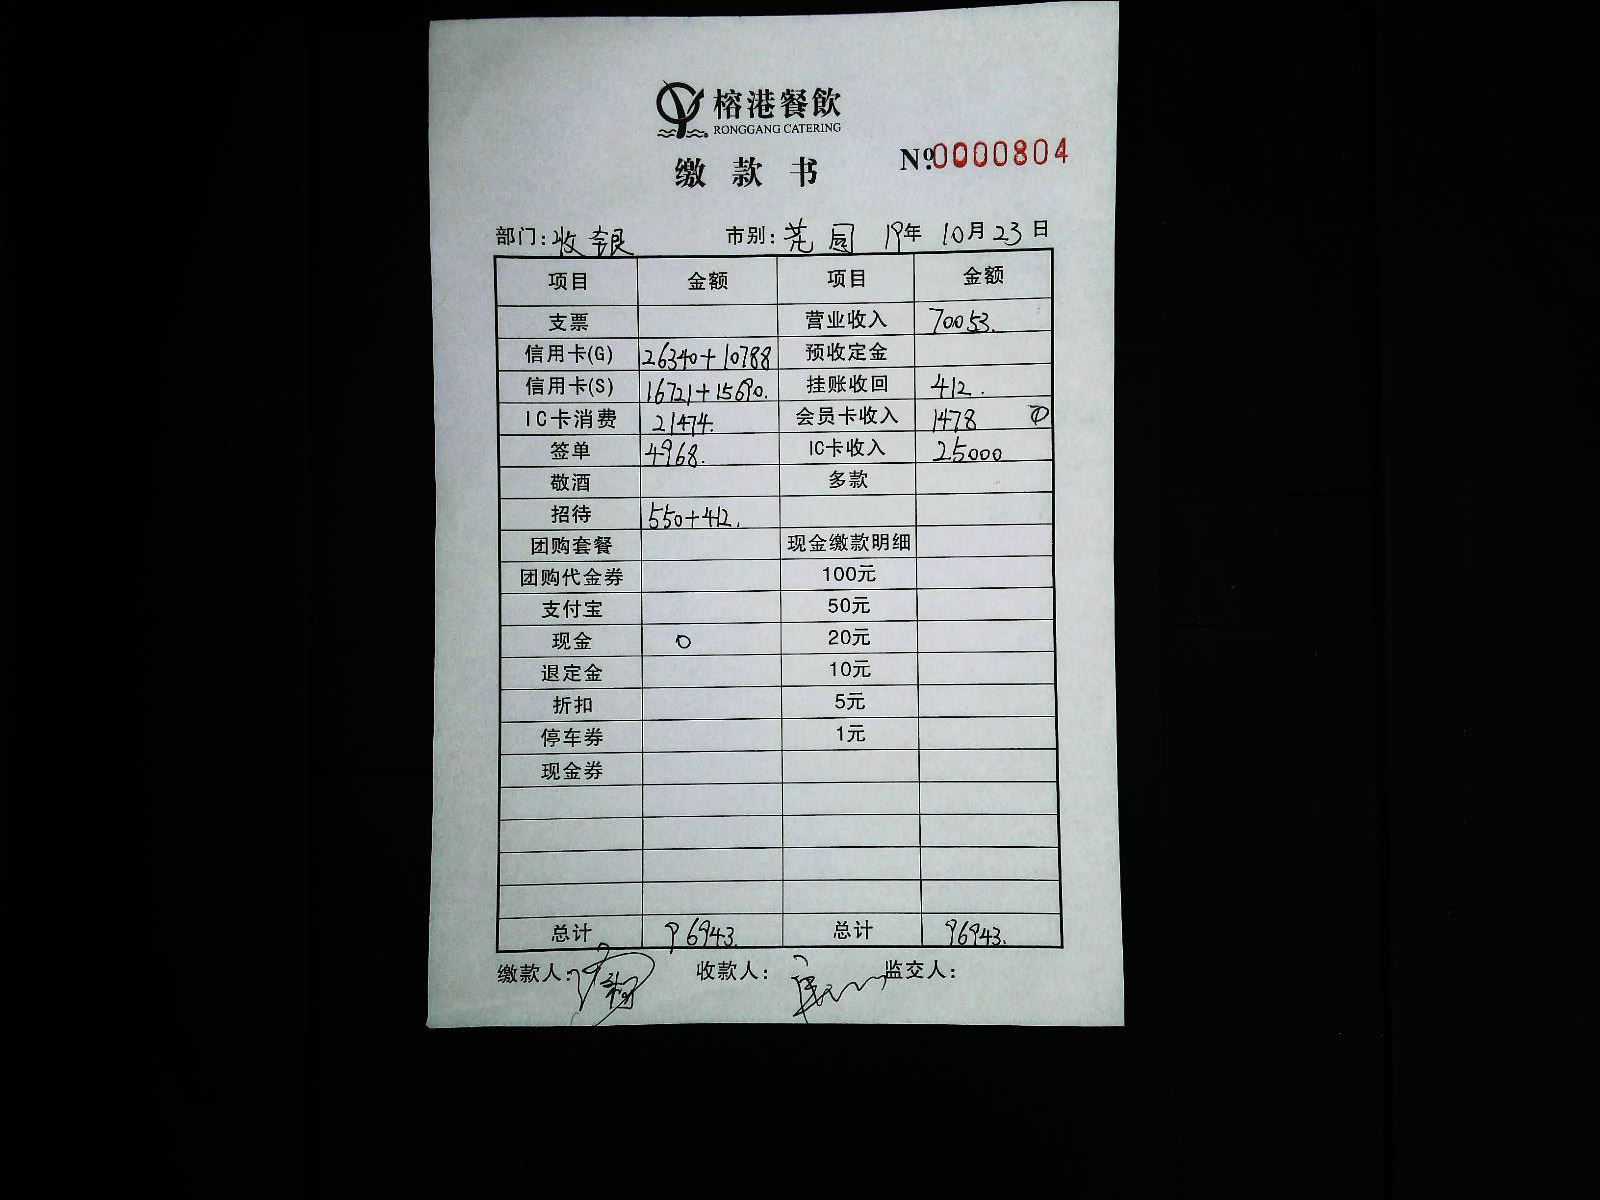 榕港餐飲
RONGGANG CATERING
缴款书
No.0000804
部门:收银 市别: 园 19年 10月23日
项目 金额 项目 金额
支票 营业收入 70053.
信用卡(G) 26340+10788 预收定金
信用卡(S) 16721+15690. 挂账收回 412.
IC卡消费 21474. 会员卡收入 1478
签单 4968. IC卡收入 25000
敬酒 多款
招待 550+412.
团购套餐 现金缴款明细
团购代金券 100元
支付宝 50元
现金 0 20元
退定金 10元
折扣 5元
停车券 1元
现金券
总计 96943. 总计 96943.
缴款人: 收款人: 监交人: